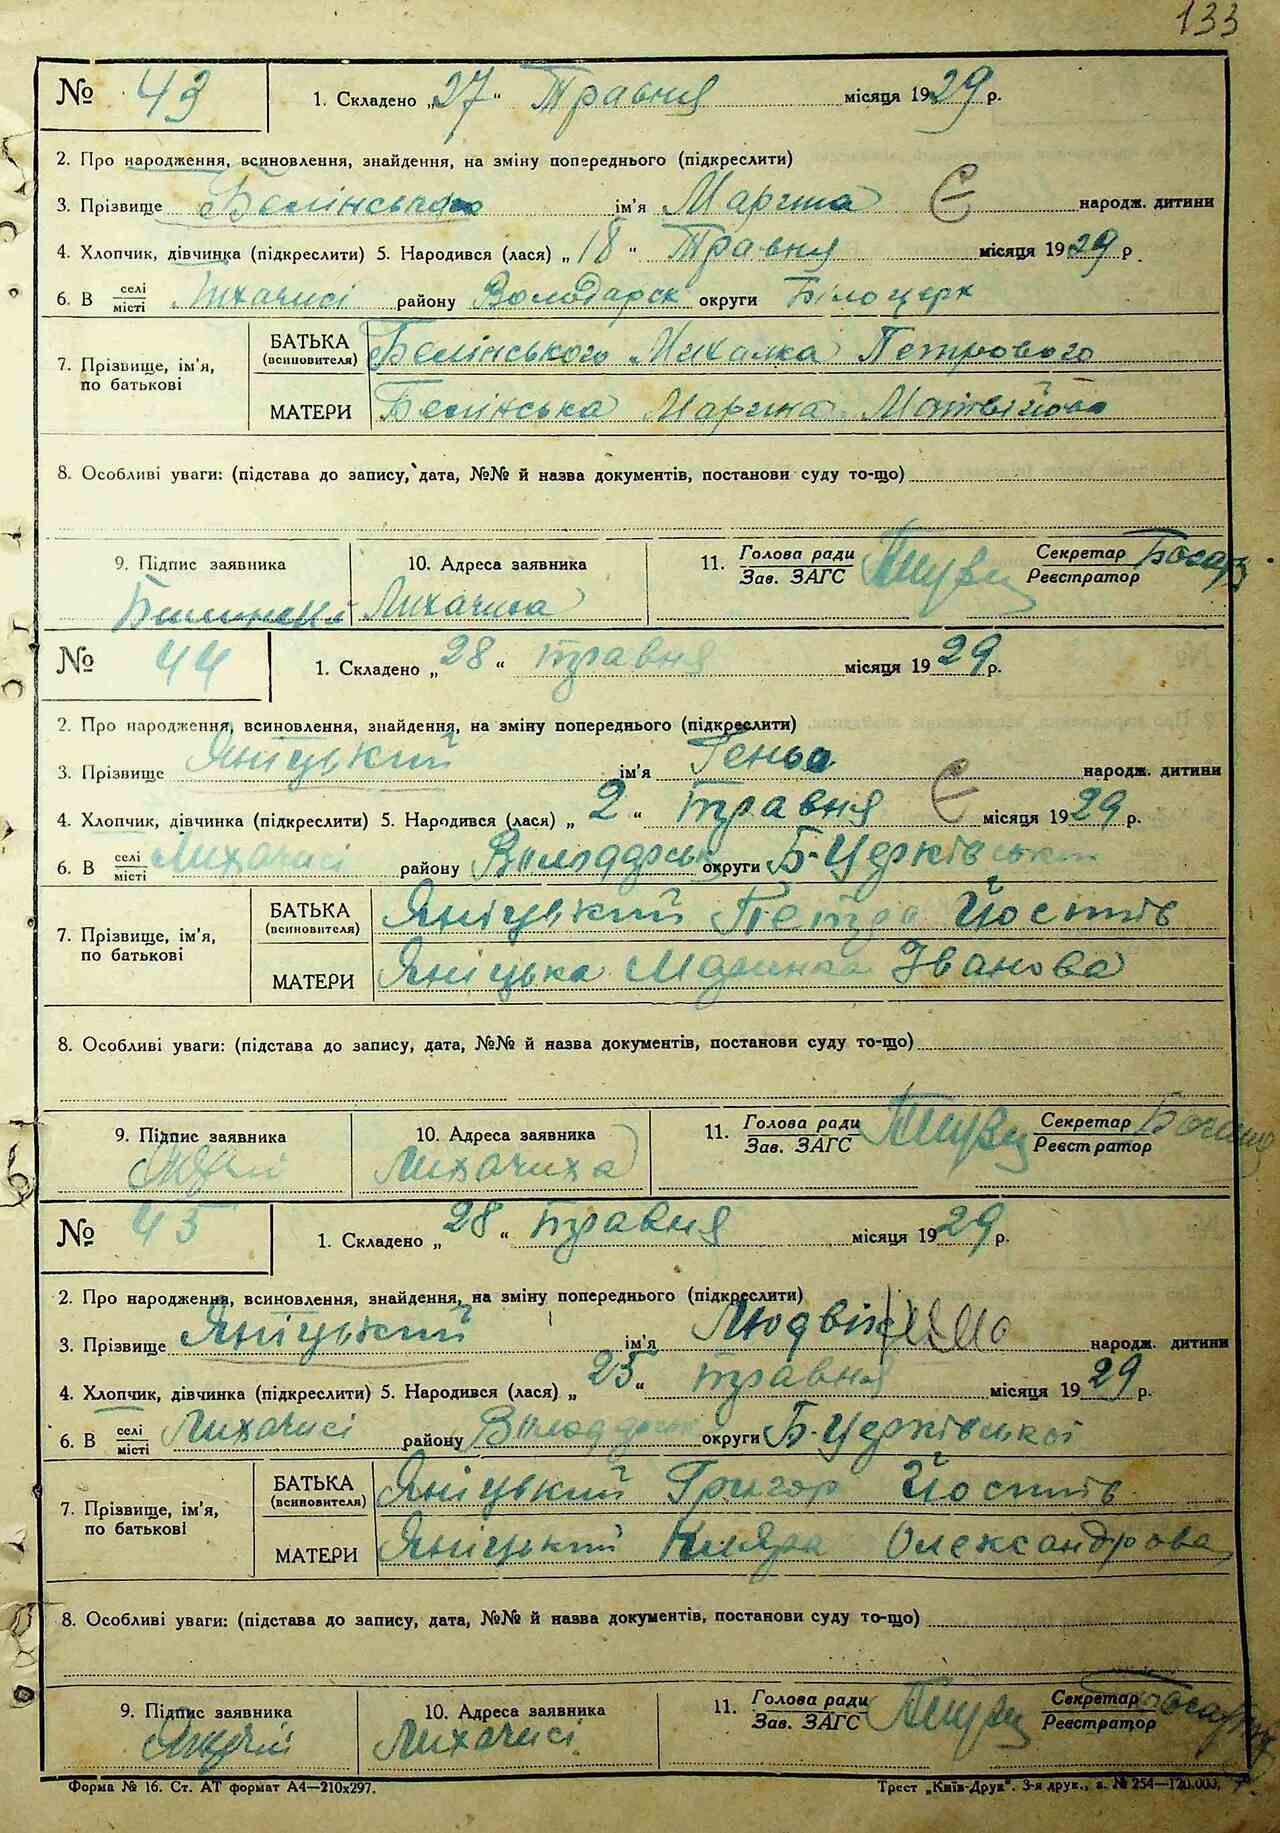 133
№ 43 1. Складено „27“ Травня місяця 1929 р.
2. Про народження, всиновлення, знайдення, на зміну попереднього (підкреслити)
3. Прізвище Белінська ім'я Марина Є народж. дитини
4. Хлопчик, дівчинка (підкреслити) 5. Народився (лася) „18“ Травня місяця 1929 р.
6. В селі/місті Лихачисі району Володарськ округи Білоцерк
7. Прізвище, ім'я, по батькові
БАТЬКА (всиновителя) Белінського Михалка Петрового
МАТЕРИ Белінська Марина Матвійова
8. Особливі уваги: (підстава до запису, дата, №№ й назва документів, постанови суду то-що)
9. Підпис заявника 10. Адреса заявника 11. Голова ради/Зав. ЗАГС Секретар/Реєстратор
Лихачиха
№ 44 1. Складено „28“ травня місяця 1929 р.
2. Про народження, всиновлення, знайдення, на зміну попереднього (підкреслити)
3. Прізвище Яніцький ім'я Геньо народж. дитини
4. Хлопчик, дівчинка (підкреслити) 5. Народився (лася) „2“ травня Є місяця 1929 р.
6. В селі/місті Лихачисі району Володарськ округи Б-Церківської
7. Прізвище, ім'я, по батькові
БАТЬКА (всиновителя) Яніцький Петро Йостів
МАТЕРИ Яніцька Маринка Іванова
8. Особливі уваги: (підстава до запису, дата, №№ й назва документів, постанови суду то-що)
9. Підпис заявника 10. Адреса заявника 11. Голова ради/Зав. ЗАГС Секретар/Реєстратор
Лихачиха
№ 45 1. Складено „28“ травня місяця 1929 р.
2. Про народження, всиновлення, знайдення, на зміну попереднього (підкреслити)
3. Прізвище Яніцький ім'я Людвік народж. дитини
4. Хлопчик, дівчинка (підкреслити) 5. Народився (лася) „25“ травня місяця 1929 р.
6. В селі/місті Лихачисі району Володарськ округи Б-Церківської
7. Прізвище, ім'я, по батькові
БАТЬКА (всиновителя) Яніцький Григор Йостів
МАТЕРИ Яніцький Кляра Олександрова
8. Особливі уваги: (підстава до запису, дата, №№ й назва документів, постанови суду то-що)
9. Підпис заявника 10. Адреса заявника 11. Голова ради/Зав. ЗАГС Секретар/Реєстратор
Лихачисі
Форма № 16. Ст. АТ формат А4—210х297. Трест „Київ-Друк“. 3-я друк., з. № 254—120.000.